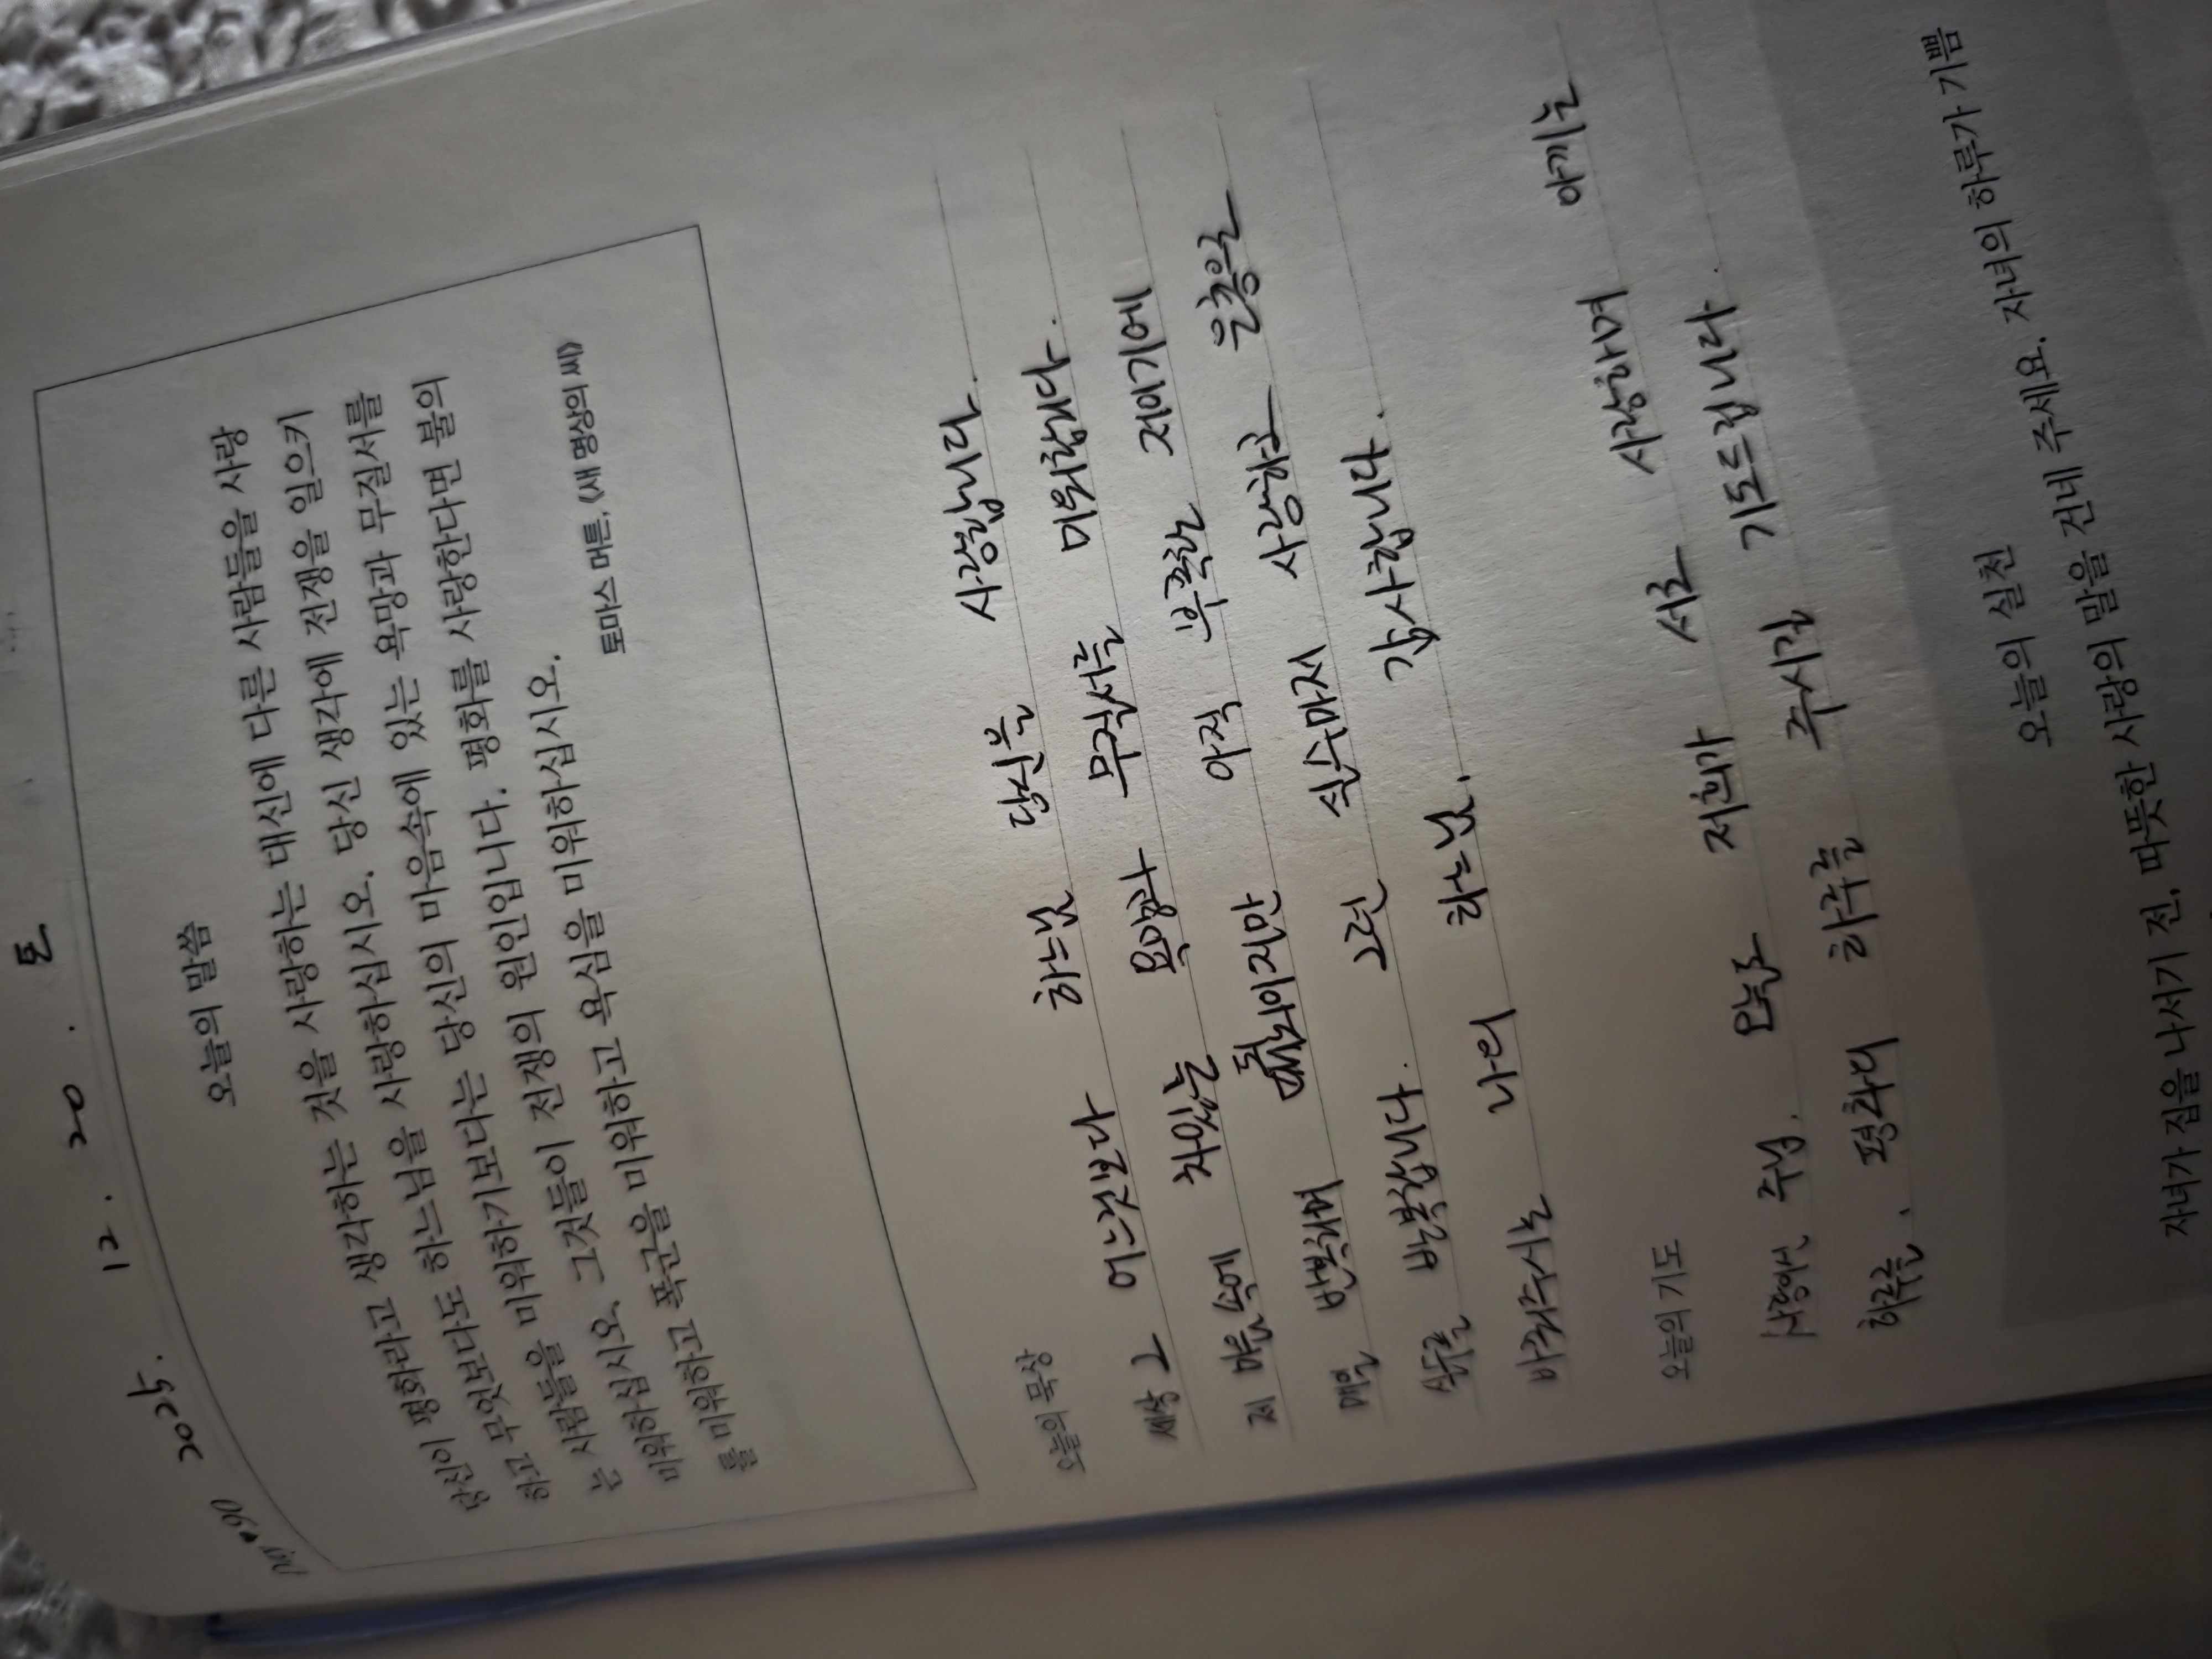 Day*90
2025. 12. 20. 토
오늘의 말씀
당신이 평화라고 생각하는 것을 사랑하는 대신에 다른 사람들을 사랑
하고 무엇보다도 하느님을 사랑하십시오. 당신 생각에 전쟁을 일으키
는 사람들을 미워하기보다는 당신의 마음속에 있는 욕망과 무질서를
미워하십시오. 그것들이 전쟁의 원인입니다. 평화를 사랑한다면 불의
를 미워하고 폭군을 미워하고 욕심을 미워하십시오.
토마스 머튼, 《새 명상의 씨》
오늘의 묵상
세상 그 어느것보다 하느님 당신을 사랑합니다.
제 마음 속에 차있는 욕망과 무질서를 미워합니다.
매일 반복하며 이지만 아직 부족한 저이기에
실수를 반복합니다. 그런 실수마저 사랑하고 은총으로
바꿔주시는 나의 하느님. 감사합니다.
오늘의 기도
사랑이신 주님. 오늘도 저희가 서로 사랑하며 아끼는
하루를, 평화의 하루를 주시길 기도드립니다.
오늘의 실천
자녀가 집을 나서기 전, 따뜻한 사랑의 말을 건네 주세요. 자녀의 하루가 기쁨